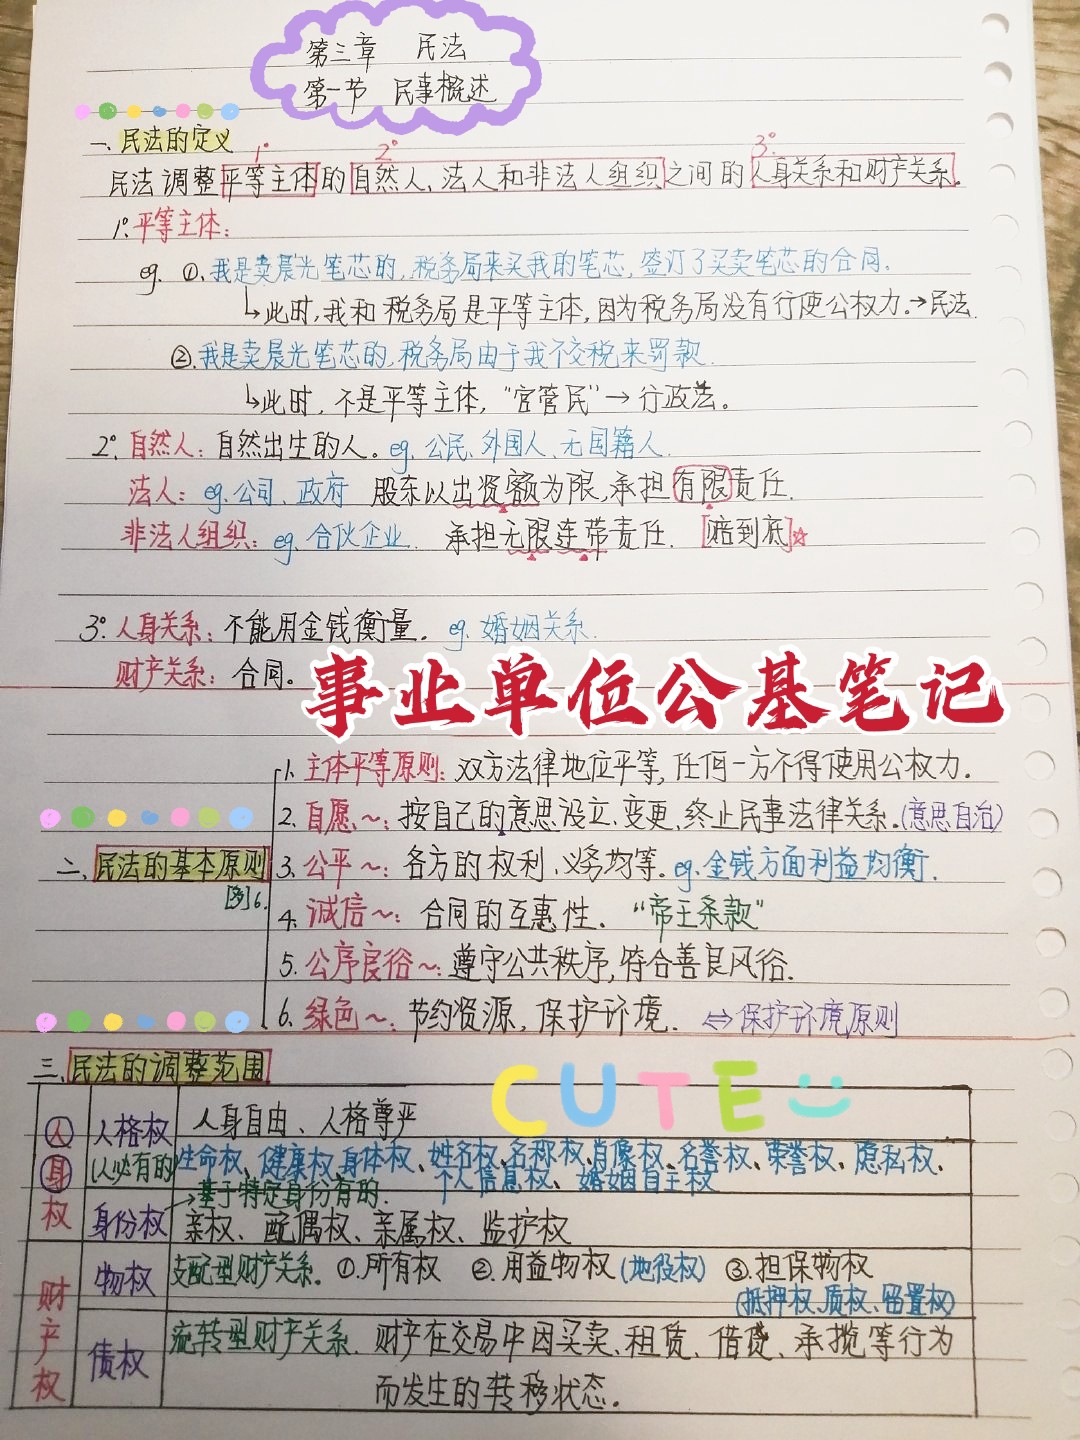 第三章 民法
第一节 民事概述
一、民法的定义
1° 2° 3°
民法调整平等主体的自然人、法人和非法人组织之间的人身关系和财产关系。
1°.平等主体：
eg. ①.我是卖晨光笔芯的,税务局来买我的笔芯,签订了买卖笔芯的合同.
↳此时,我和税务局是平等主体,因为税务局没有行使公权力.→民法.
②.我是卖晨光笔芯的,税务局由于我不交税来罚款.
↳此时,不是平等主体,“官管民”→行政法。
2°.自然人：自然出生的人。eg.公民、外国人、无国籍人.
法人：eg.公司、政府 股东以出资额为限,承担有限责任.
非法人组织：eg.合伙企业. 承担无限连带责任. [赔到底]☆
3°.人身关系：不能用金钱衡量. eg.婚姻关系.
财产关系：合同。
事业单位公基笔记
1.主体平等原则：双方法律地位平等,任何一方不得使用公权力.
2.自愿~：按自己的意思设立、变更、终止民事法律关系.(意思自治)
二、民法的基本原则
3.公平~：各方的权利、义务均等.eg.金钱方面利益均衡.
[多]6.
4.诚信~：合同的互惠性. “帝王条款”
5.公序良俗~：遵守公共秩序,符合善良风俗.
6.绿色~：节约资源,保护环境. ⇔保护环境原则
三、民法的调整范围
CUTE
人身权
人格权 人身自由、人格尊严
(人必有的) 生命权、健康权、身体权、姓名权、名称权、肖像权、名誉权、荣誉权、隐私权、
个人信息权、婚姻自主权
→基于特定身份有的.
身份权 亲权、配偶权、亲属权、监护权
财产权
物权 支配型财产关系. ①.所有权 ②.用益物权(地役权) ③.担保物权
(抵押权、质权、留置权)
债权 流转型财产关系. 财产在交易中因买卖、租赁、借贷、承揽等行为
而发生的转移状态.